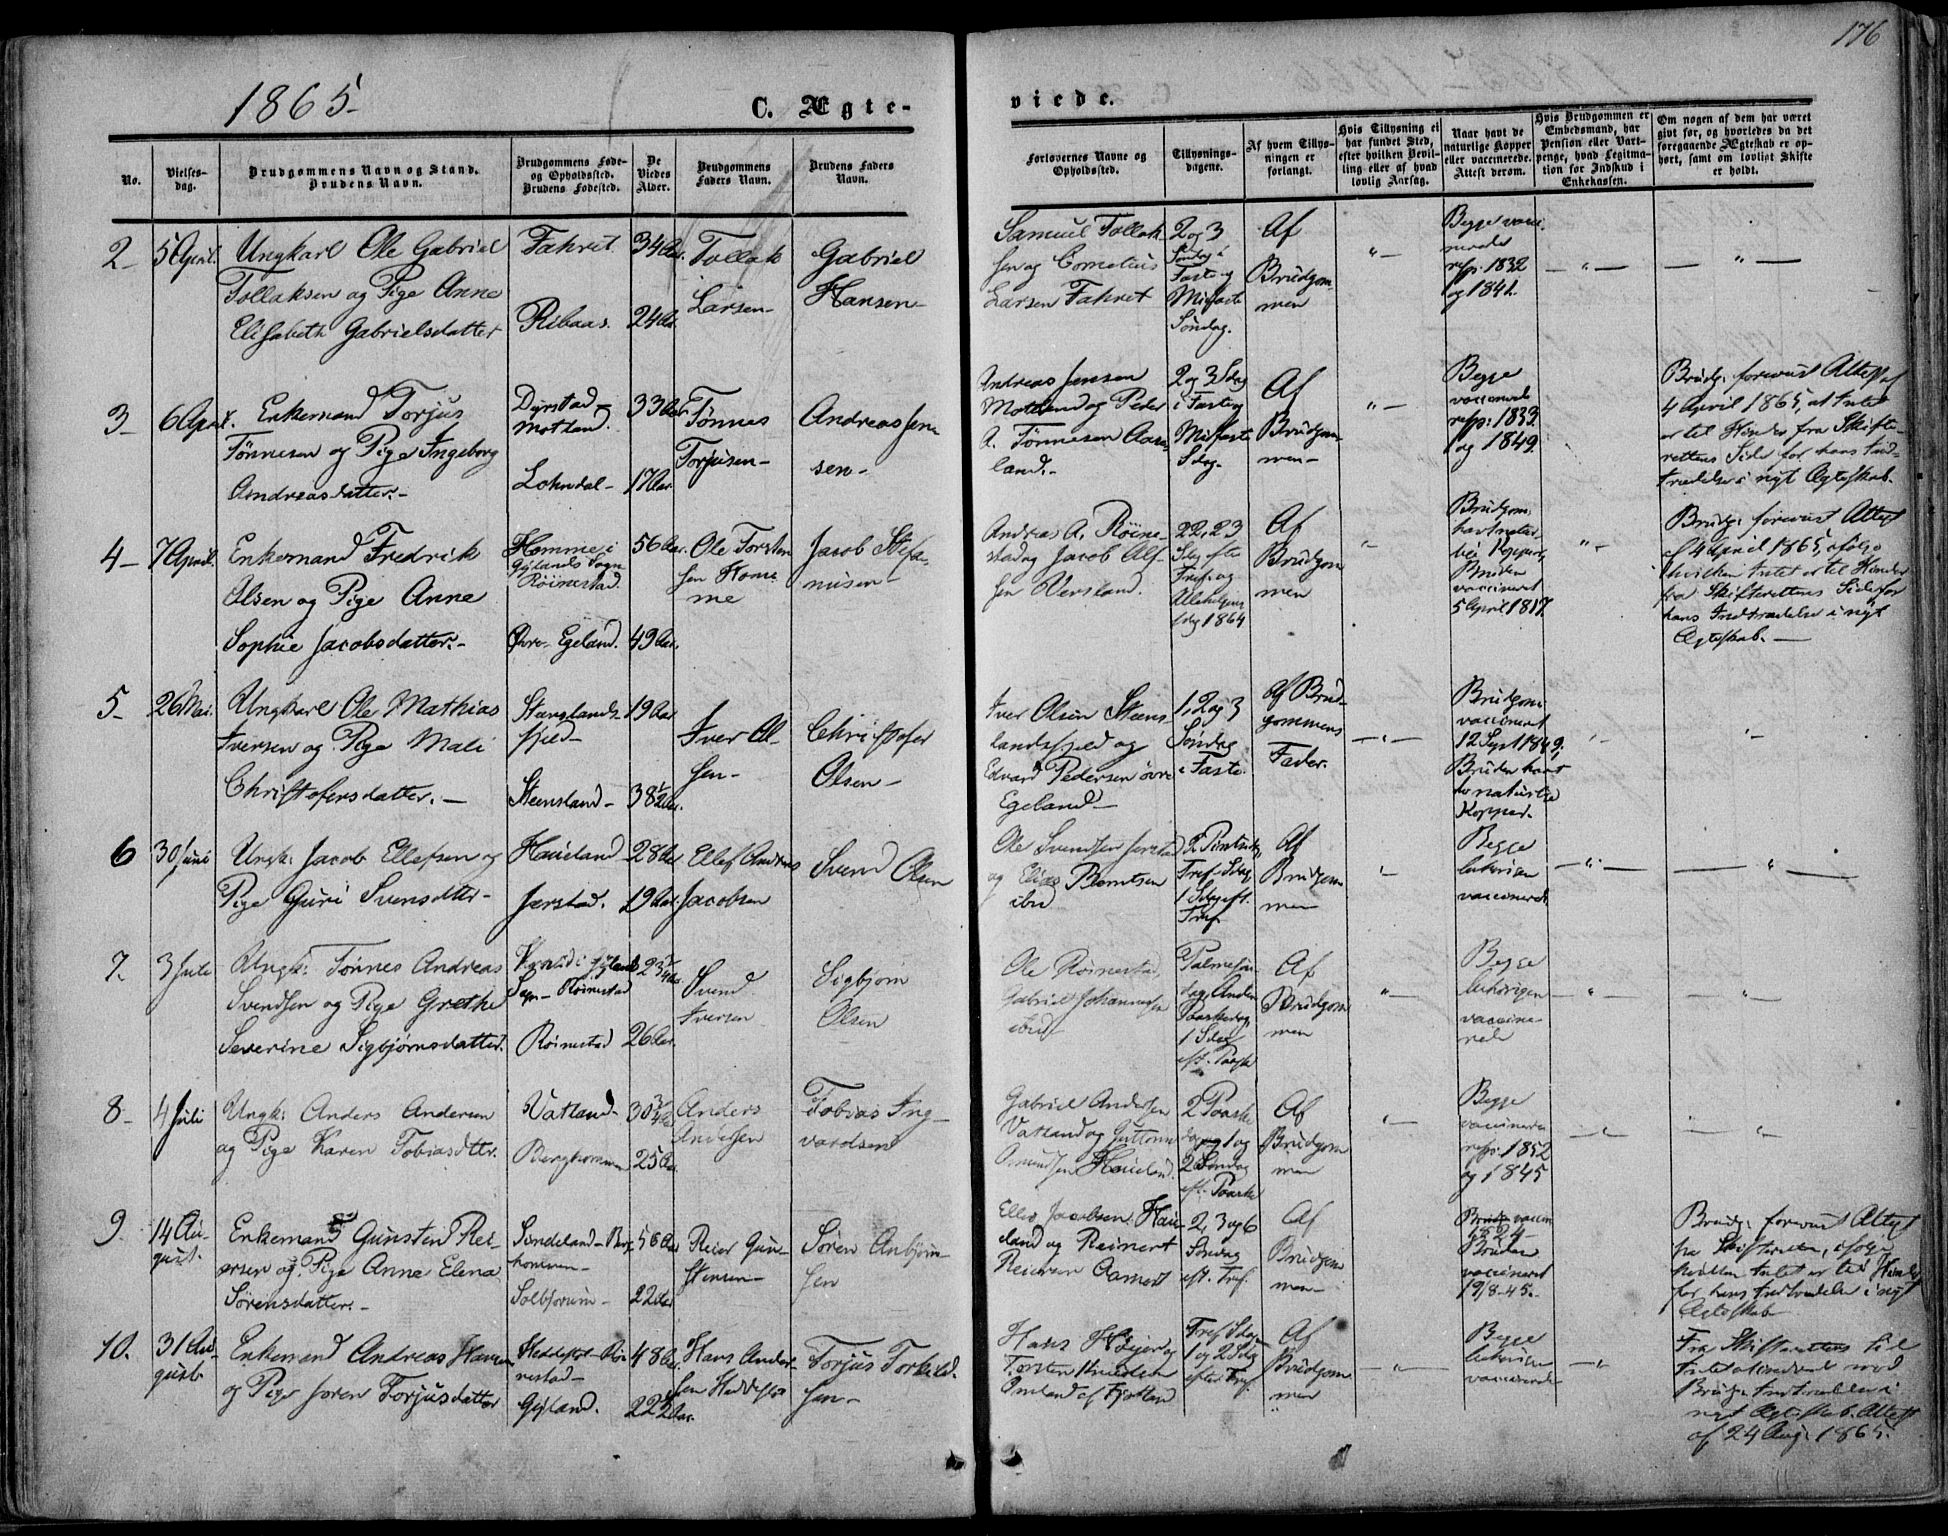 176
1865
C. Ægteviede.
No.
Vielses-
dag.
Brudgommens Navn og Stand.
Brudens Navn.
Brudgommens Føde-
og Opholdssted.
Brudens Fødested.
De
Viedes
Alder.
Brudgommens
Faders Navn.
Brudens Faders
Navn.
Forlovernes Navne og
Opholdssted.
Tillysnings-
dagene.
Af hvem Tillys-
ningen er
forlangt.
Hvis Tillysning ei
har fundet Sted,
efter hvilken Bevil-
ling eller af hvad
lovlig Aarsag.
Naar havt de
naturlige Kopper
eller vaccinerede.
Attest derom.
Hvis Brudgommen er
Embedsmand, har
Pension eller Vart-
penge, hvad Legitima-
tion for Indskud i
Enkekassen.
Om nogen af dem har været
gift før, og hvorledes da det
foregaaende Ægteskab er op-
hørt, samt om lovligt Skifte
er holdt.
2
5 April.
Ungkarl Ole Gabriel
Tollaksen og Pige Anne
Elisabeth Gabrielsdatter
Fahret
Ribaas.
34 Aar.
24 Aar.
Tollak
Larsen
Gabriel
Hansen
Samuel Tollak
sen og Cornelius
Larsen Fahret
2 og 3
Søndag i
Faste og
Midfaste
Søndag.
Af
Brudgom-
men
Begge vacci-
nerede
resp. 1832
og 1841.
3
6 April.
Enkemand Torjus
Tønnesen og Pige Ingeborg
Andreasdatter.
Dyrstad
Motland.
Lohndal
33 Aar.
17 Aar.
Tønnes
Torjusen
Andreas Jen
sen
Andreas Jensen
Motland og Peder
A. Tønnesen Aas
land.
2 og 3 Sdag
i Faste og
Midfaste
Sdag.
Af
Brudgom-
men
Begge
vaccinerede
resp: 1833
og 1849.
Brudg. forevist Attest af
4 April 1865, at Intet
er til Hinder fra Skifte-
rettens Side for hans Ind-
trædelse i nyt Ægteskab.
4
7 April.
Enkemand Fredrik
Olsen og Pige Anne
Sophie Jacobsdatter.
Homme i
Gylands Sogn
Røinestad.
Øvre Egeland.
56 Aar.
49 Aar.
Ole Torsten
sen Hom
me
Jacob Stefa-
nusen
Andreas A. Røine-
stad og Jacob Ol-
sen Versland.
22, 23
Sdag efter
Tref. og
Allehelgens
sdag 1864
Af
Brudgom
men
Brudgom
havt natur-
lige Kopper,
Bruden
vaccineret
5 April 1817.
Brudg. forevist Attest
af 4 April 1865, ifølge
hvilken Intet er til Hinder
fra Skifterettens Side for
hans Indtrædelse i nyt
Ægteskab.
5
26 Mai.
Ungkarl Ole Mathias
Iversen og Pige Mali
Christofersdatter.
Stenslands-
fjeld
Steensland
19 Aar
38½ Aar.
Iver Ol-
sen
Christofer
Olsen
Iver Olsen Steens-
landsfjeld og
Edvard Pedersen øvre
Egeland
1, 2 og 3
Søndag
i Faste.
Af Brud-
gommens
Fader.
Brudgom
vaccineret
12 Sept 1849,
Bruden havt
de naturlige
Kopper.
6
30 Juni
Ungk. Jacob Ellefsen og
Pige Guri Svensdtter
Haueland
Jerstad.
28 Aar
19 Aar.
Ellef Andreas
Jacobsen
Svend Olsen
Ole Svendsen Jerstad
og Elias Berntsen
ibid
2 Pintsedag,
Tref. Sdag
1 Sdag eft.
Tref.
Af
Brudgom
men
Begge
vaccinerede
7.
3 Juli
Ungk. Tønnes Andreas
Svendsen og Pige Grethe
Severine Sigbjørnsdatter.
i Gylands
Sogn Røinestad
Røinestad
26 Aar.
Svend
Iversen
Sigbjørn
Olsen
Ole Røinestad,
Gabriel Johannessen
ibid
Palmesøn-
dag, Anden
Paaskedag,
1 Sdag
eft. Paaske
Af
Brudgom
men
Begge
vaccine-
rede
8
4 Juli
Ungk. Anders Andersen
og Pige Karen Tobiasdtter.
Vatland
Berghommen
25 Aar.
Anders
Andersen
Tobias Ing-
vardsen
Gabriel Andersen
Vatland og Guttorm
Omundsen Haueland.
2 Paaske
dag og 1 og
2 Søndag
eft. Paaske
Af
Brudgom
men
Begge
vaccinerede
resp. 1852
og 1845
9.
14 Au-
gust.
Enkemand Gunsten Rei-
ersen og Pige Anne Elena
Sørensdatter.
Sindeland Berg-
hommen
Solbjørum
56 Aar
22 Aar
Reier Gun-
stensen
Søren Anbjørn-
sen
Ellef Jacobsen Haue-
land og Reinert
Reiersen Aamot
2, 3 og 6
Søndag
eft. Tref.
Af
Brudgom
men
1824
Bruden
vaccineret
19/8-45.
Brudg. forevist Attest
fra Skifteretten, ifølge
hvilken Intet er til Hinder
for hans Indtrædelse i nyt
Ægteskab
10.
31 Au-
gust
Enkemand Andreas Hansen
og Pige Joren Torjusdatter
Heddeftot Røi-
nestad
Gyland.
48 Aar.
22½ Aar.
Hans Ander-
sen
Torjus Torkild-
sen
Hans Høier og
Torsten Knudsen
Omland af Fjotland
Tref. Sdag
1 og 2 Sdag
efter Tref.
Af
Brudgom
men
Begge
vaccinerede
Fra Skifterettens Side
Intet mod
Brudg. Indtrædelse i
nyt Ægteskab. Attest
af 24 Aug. 1865.